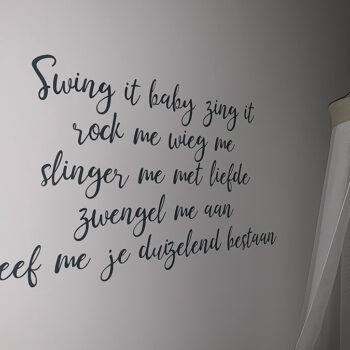 Swing it baby zing it
rock me wieg me
slinger me met liefde
zwengel me aan
eef me je duizelend bestaan